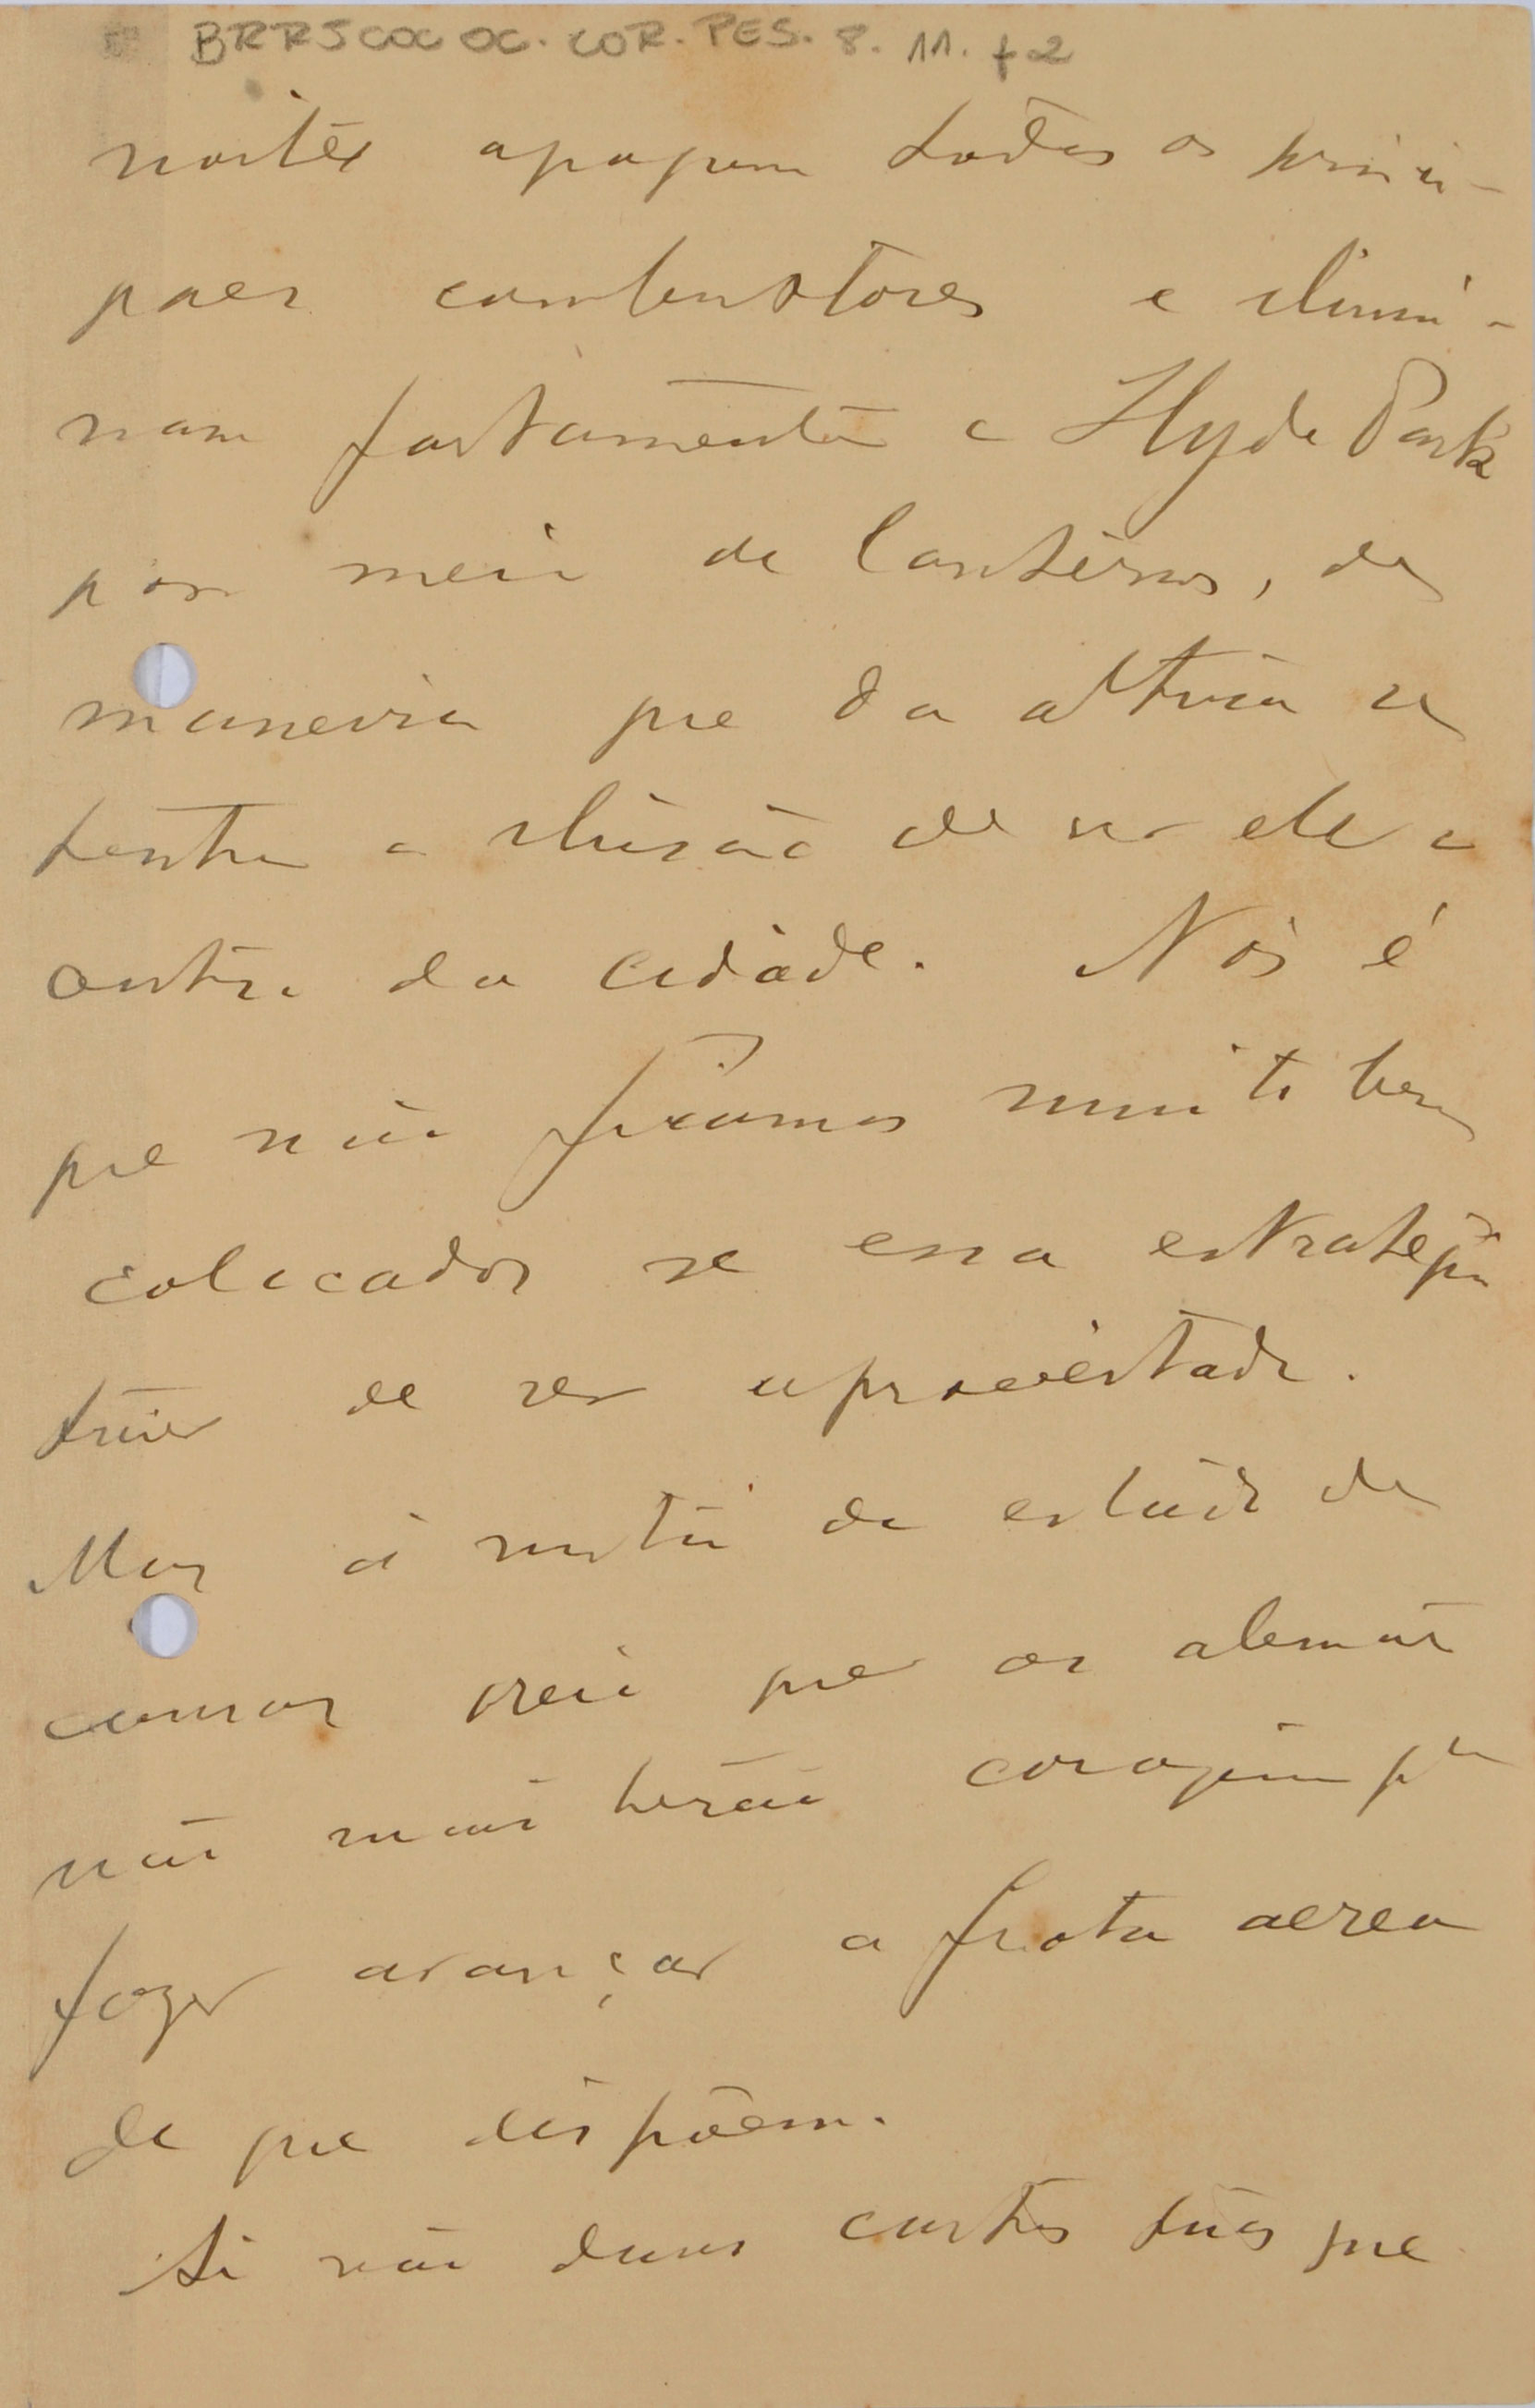 BRRJCOC OC. COR. PES. 8. 11. f2
noites apagam todos os princi-
paes combustores e illumi-
nam fortemente o Hyde Park
por meio de lanternas, de
maneira que da altura se
tenha a illusão de ser elle o
centro da cidade. Nós é
que não ficamos muito bem
collocados se essa estrategia
tiver de ser aproveitada.
Mas á vista do estado de
cousas creio que os alemães
não mais terão coragem pª
fazer avançar a frota aerea
de que dispõem.
Si não duas cartas tuas que